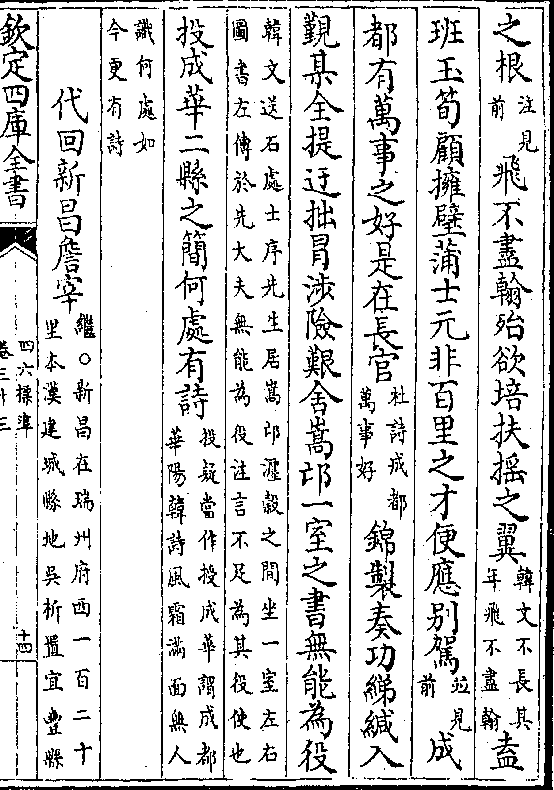 之根注見前飛不盡翰殆欲培扶搖之翼韓文不長其年飛不盡翰盍
班玉筍顧擁壁蒲士元非百里之才便應别駕並見前成
都有萬事之好是在長官杜詩成都萬事好錦製奏功綈緘入
覲某全提迂拙冒涉險艱舍嵩邙一室之書無能為役
韓文送石處士序先生居嵩邙瀍榖之間坐一室左右圖書左傳於先大夫無能為役注言不足為其役使也
投成華二縣之簡何處有詩投疑當作授成華謂成都華陽韓詩風霜滿面無人
識何處如今更有詩
代回新昌詹宰繼○新昌在瑞州府西一百二十里本漢建城縣地吳析置宜豐縣
欽定四庫全書
四六標準
卷三十三
十四